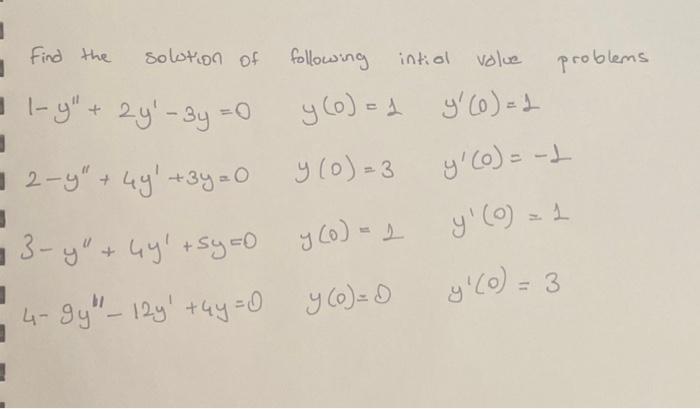 Find the solution of following intial value problems
1- y'' + 2y' - 3y = 0 y(0) = 1 y'(0) = 1
2- y'' + 4y' + 3y = 0 y(0) = 3 y'(0) = -1
3- y'' + 4y' + 5y = 0 y(0) = 1 y'(0) = 1
4- 9y'' - 12y' + 4y = 0 y(0) = 0 y'(0) = 3